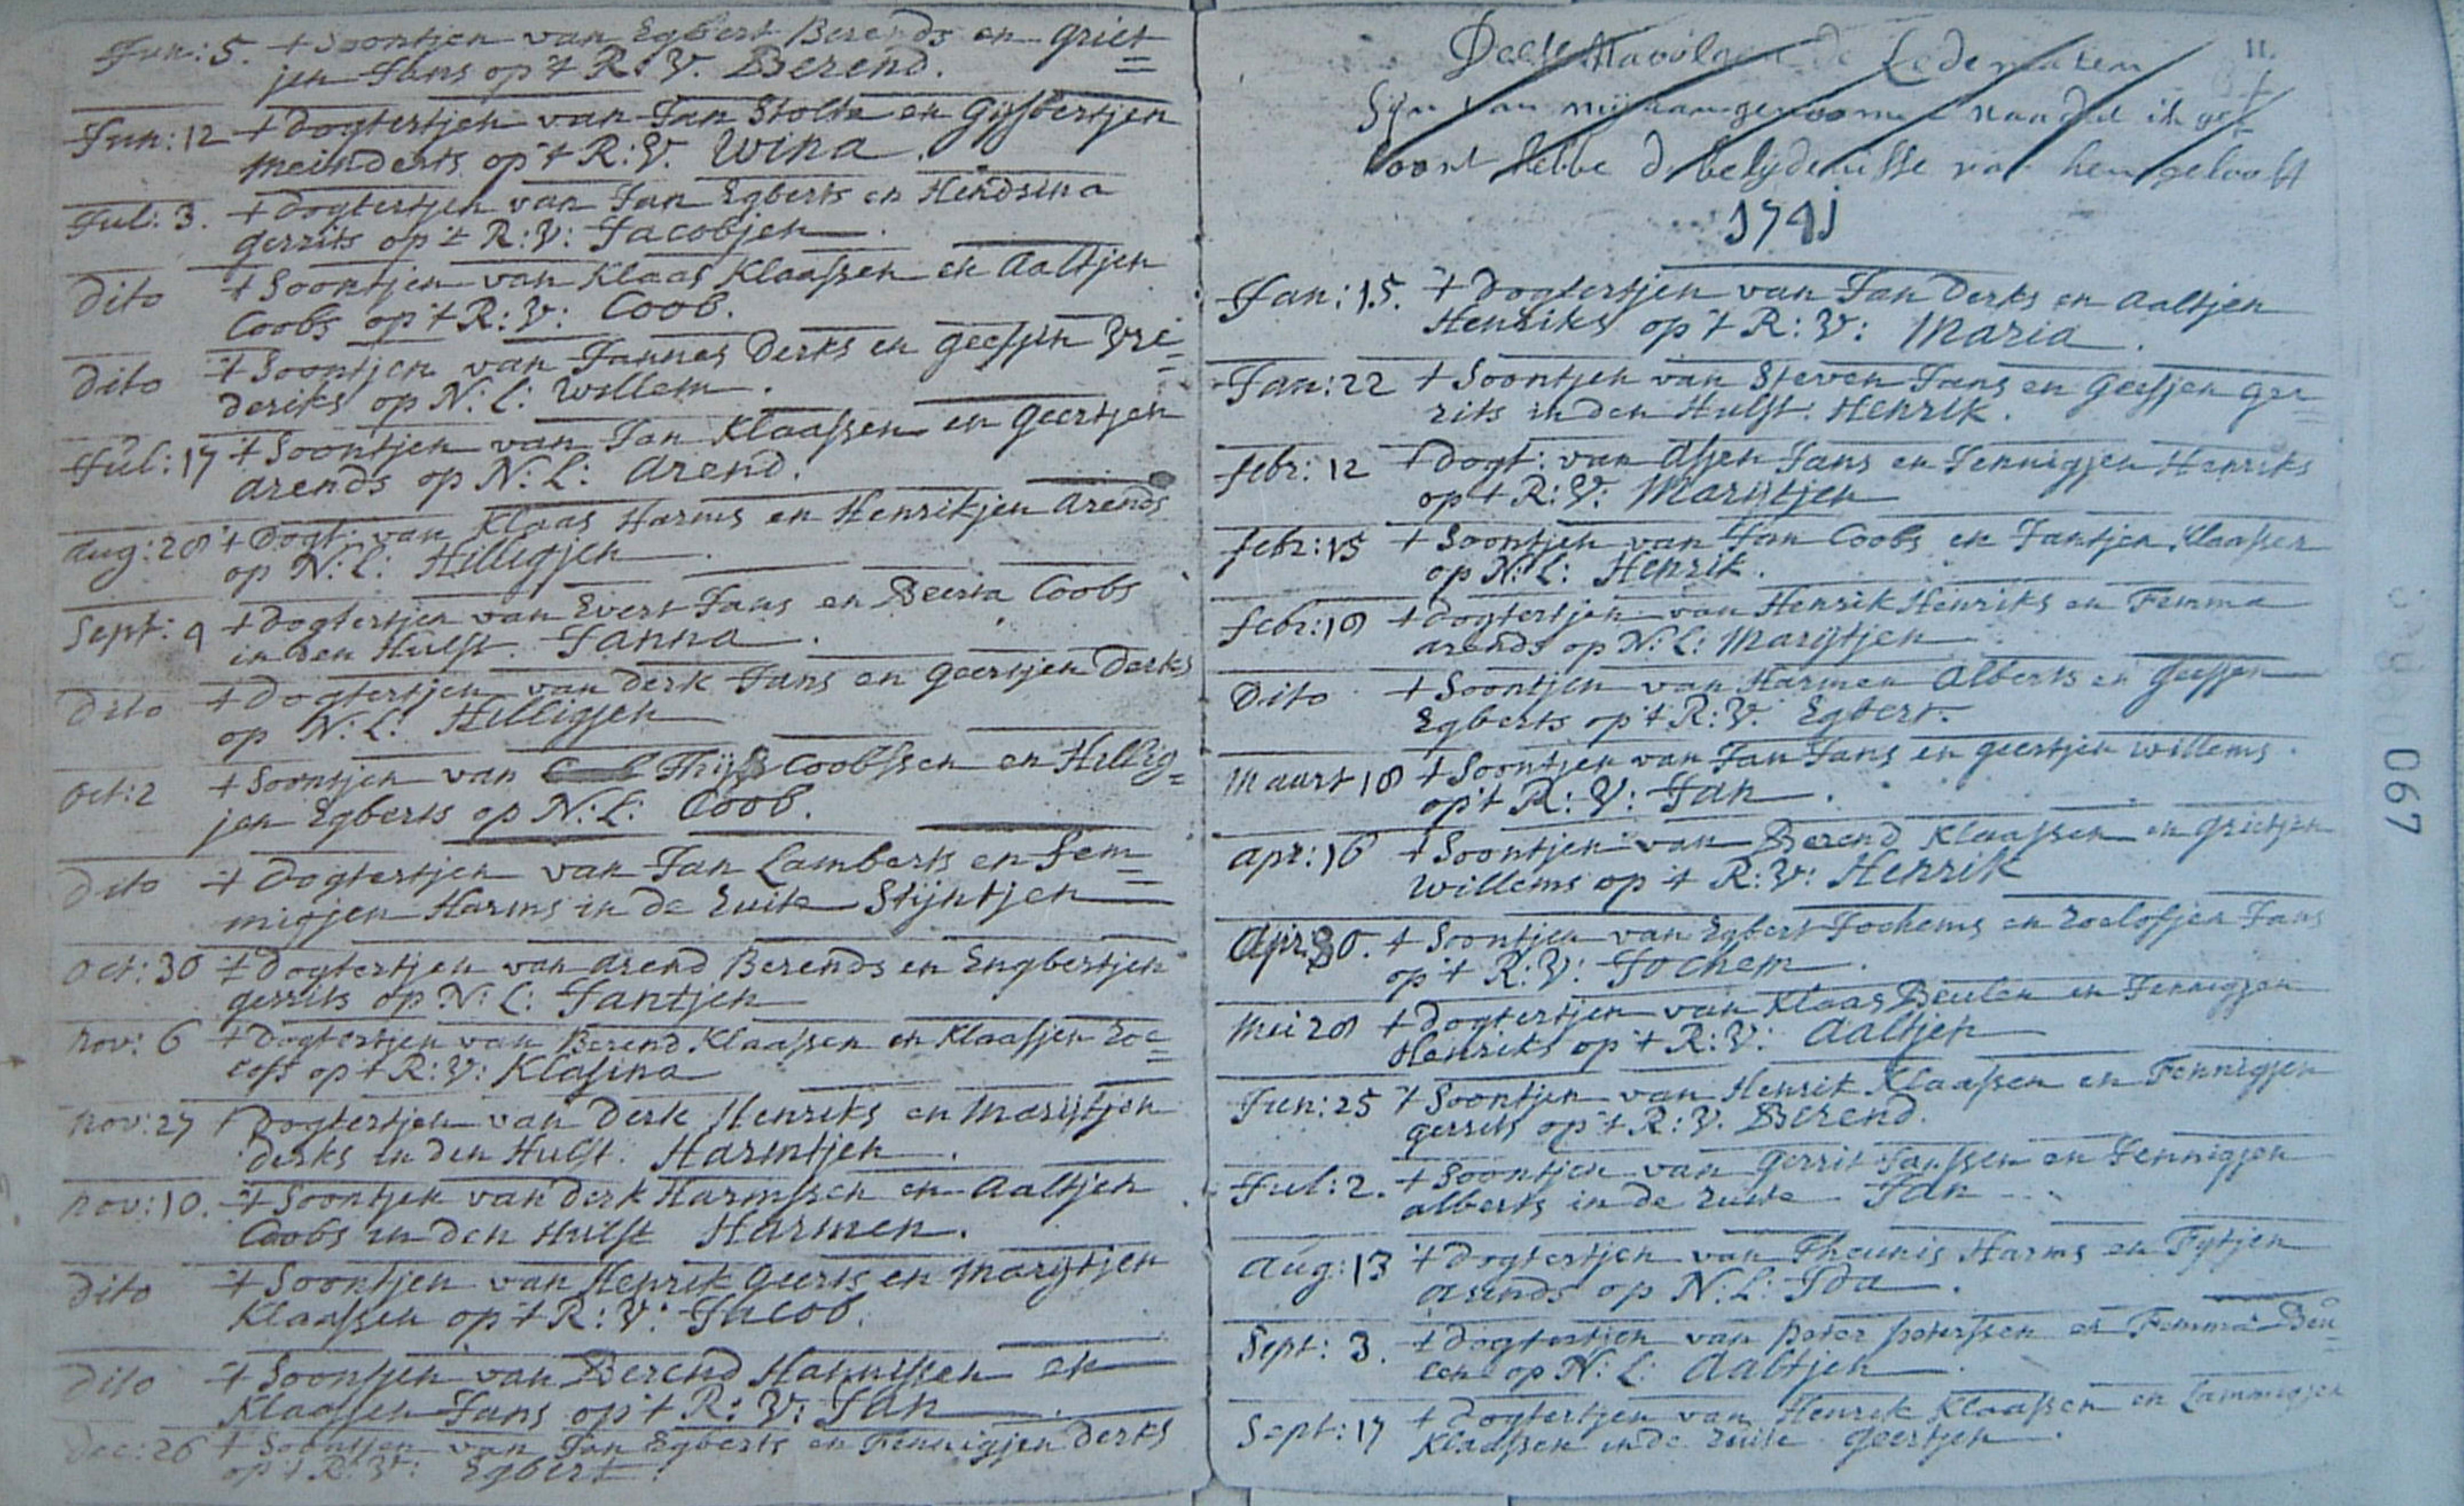 Jun: 5. 't Soontjen van Egbert Berends en Griet=
jen Jans op 't R: V. Berend.
Jun: 12 't Dogtertjen van Jan Stolte en Gijsbertjen
Meinderts op 't R: V. Wina.
Jul: 3. 't Dogtertjen van Jan Egberts en Hendsina
Gerrits op 't R: V: Jacobjen.
Dito 't Soontjen van Klaas Klaassen en Aaltjen
Coobs op 't R: V: Coob.
Dito 't Soontjen van Jannes Derks en Geesjen Vre=
deriks op N: L: Willem.
Jul: 17 't Soontjen van Jan Klaassen en Geertjen
Arends op N: L: Arend.
Aug: 28 't Dogt: van Klaas Harms en Henrikjen Arends
op N: L: Hilligjen.
Sept: 4 't Dogtertjen van Evert Jans en Beerta Coobs
in den Hulst. Janna.
Dito 't Dogtertjen van Derk Jans en Geertjen Derks
op N: L: Hilligjen
Oct: 2 't Soontjen van Thijs Coobssen en Hillig=
jen Egberts op N: L: Coob.
Dito 't Dogtertjen van Jan Lamberts en Fem=
migjen Harms in de Luite Stijntjen
Oct: 30 't Dogtertjen van Arend Berends en Engbertjen
Gerrits op N: L: Jantjen
Nov: 6 't Dogtertjen van Berend Klaassen en Klaasjen Roe=
lofs op 't R: V: Klasina
Nov: 27 't Dogtertjen van Derk Henriks en Marijtjen
Derks in den Hulst. Harmtjen.
Nov: 10. 't Soontjen van Derk Harmssen en Aaltjen
Coobs in den Hulst Harmen.
Dito 't Soontjen van Henrik Geerts en Marijtjen
Klaassen op 't R: V: Jacob.
Dito 't Soontjen van Berend Hannissen en
Klaasjen Jans op 't R: V: Jan.
Dec: 26 't Soontjen van Jan Egberts en Fennigjen Derks
op 't R: V: Egbert.
11.
de Ledematen
Sijn van mij aangenoomen naadat ik ge=
hoort hebbe de belijdenisse van hen geloof
1741
Jan: 15. 't Dogtertjen van Jan Derks en Aaltjen
Henriks op 't R: V: Maria.
Jan: 22 't Soontjen van Steven Jans en Geesjen Ger=
rits in den Hulst. Henrik.
Febr: 12 't Dogt: van Assen Jans en Jennigjen Henriks
op 't R: V: Marijtjen
Febr: 15 't Soontjen van Jan Coobs en Jantjen Klaassen
op N: L: Henrik.
Febr: 18 't Dogtertjen van Henrik Henriks en Femma
Arends op N: L: Marijtjen
Dito 't Soontjen van Harmen Alberts en Geesjen
Egberts op 't R: V: Egbert.
Maart 18 't Soontjen van Jan Jans en Geertjen Willems.
op 't R: V: Jan.
Apr: 16 't Soontjen van Berend Klaassen en Grietjen
Willems op 't R: V: Henrik
Apr: 30. 't Soontjen van Egbert Jochems en Roelofjen Jans
op 't R: V: Jochem.
Mei 28 't Dogtertjen van Klaas Beulen en Jennigjen
Henriks op 't R: V: Aaltjen
Jun: 25 't Soontjen van Henrik Klaassen en Fennigjen
Gerrits op 't R: V. Berend.
Jul: 2. 't Soontjen van Gerrit Janssen en Jennigjen
Alberts in de Luite Jan
Aug: 13 't Dogtertjen van Theunis Harms en Fytjen
Arends op N: L: Ida.
Sept: 3. 't Dogtertjen van Peter Peterssen en Femma Beu=
len op N: L: Aaltjen.
Sept: 17 't Dogtertjen van Henrik Klaassen en Lammigjen
Klaassen in de Luite Geertjen.
067